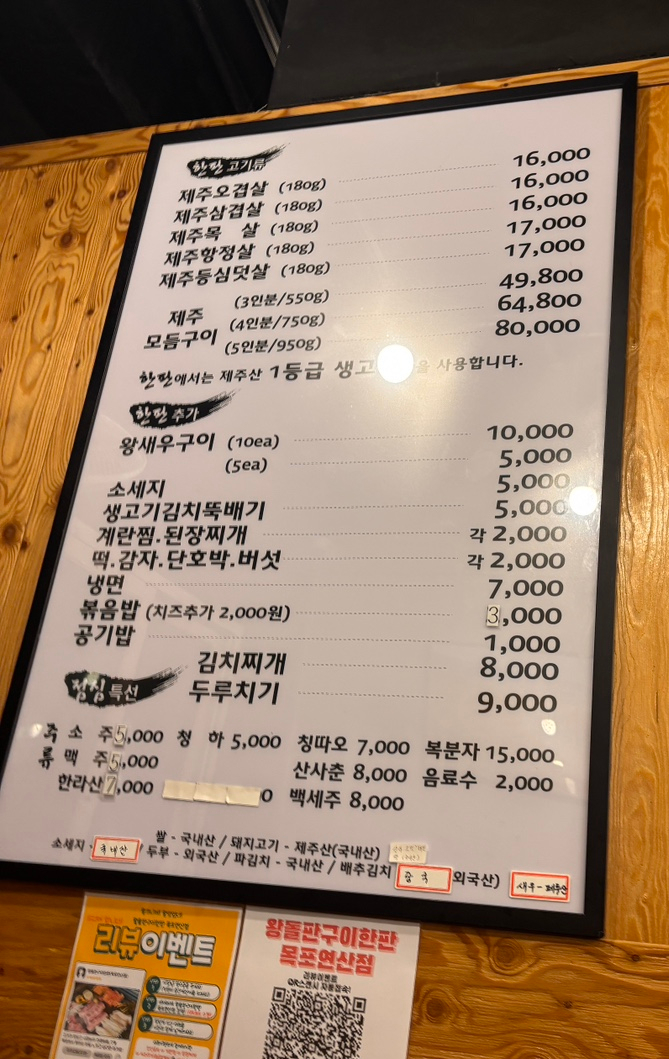 한판 고기류
제주오겹살 (180g) 16,000
제주삼겹살 (180g) 16,000
제주목 살 (180g) 16,000
제주항정살 (180g) 17,000
제주등심덧살 (180g) 17,000
제주 모듬구이 (3인분/550g) 49,800
(4인분/750g) 64,800
(5인분/950g) 80,000
한판에서는 제주산 1등급 생고 을 사용합니다.
한판 추가
왕새우구이 (10ea) 10,000
(5ea) 5,000
소세지 5,000
생고기김치뚝배기 5,000
계란찜.된장찌개 각 2,000
떡.감자.단호박.버섯 각 2,000
냉면 7,000
볶음밥 (치즈추가 2,000원) 3,000
공기밥 1,000
점심 특선
김치찌개 8,000
두루치기 9,000
주류
소 주 5,000 청 하 5,000 칭따오 7,000 복분자 15,000
맥 주 5,000 산사춘 8,000 음료수 2,000
한라산 7,000 0 백세주 8,000
쌀 - 국내산 / 돼지고기 - 제주산(국내산)
소세지 - 국내산 / 두부 - 외국산 / 파김치 - 국내산 / 배추김치 중국 외국산)
새우 - 페루산
리뷰이벤트
왕돌판구이한판
목포연산점
리뷰이벤트
QR스캔시 자동접속!